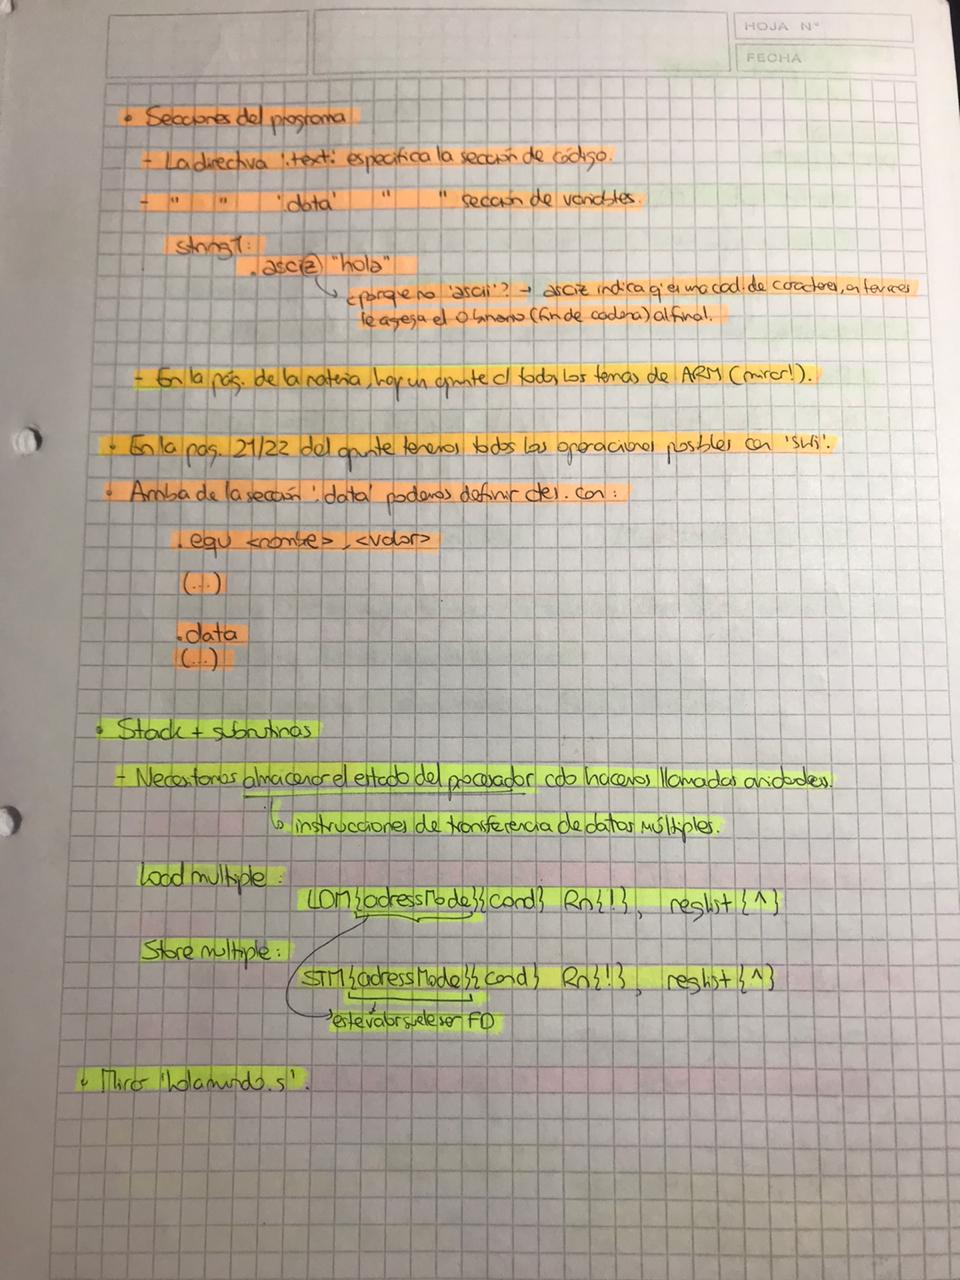 HOJA N°
FECHA
• Secciones del programa
- La directiva '.text' especifica la sección de código.
- " " '.data' " " sección de variables.
string1:
.asciz "hola"
¿porque no 'ascii'? → asciz indica q' es una cad. de caracteres, entonces
le agrega el 0 binario (fin de cadena) al final.
- En la pág. de la materia, hay un apunte c/ todos los temas de ARM (mirar!).
• En la pág. 21/22 del apunte tenemos todas las operaciones posibles con 'swi'.
• Arriba de la sección '.data' podemos definir ctes. con:
.equ <nombre>, <valor>
(...)
.data
(...)
• Stack + subrutinas
- Necesitamos almacenar el estado del procesador cdo hacemos llamadas anidadas.
↳ instrucciones de transferencia de datos múltiples.
Load multiple:
LDM{adressMode}{cond} Rn{!}, reglist{^}
Store multiple:
STM{adressMode}{cond} Rn{!}, reglist{^}
este valor suele ser FD
• Mirar 'holamundo.s'.